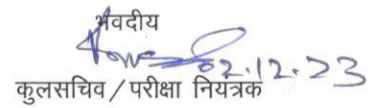 भवदीय
02.12.23
कुलसचिव / परीक्षा नियंत्रक